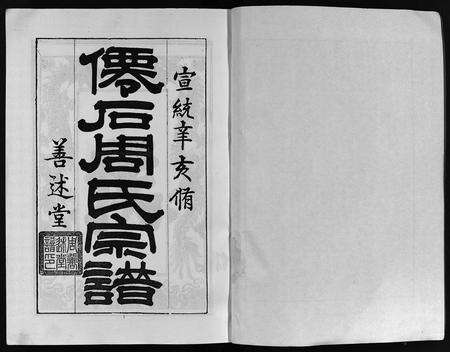 宣統辛亥脩
僊石周氏宗譜
善述堂